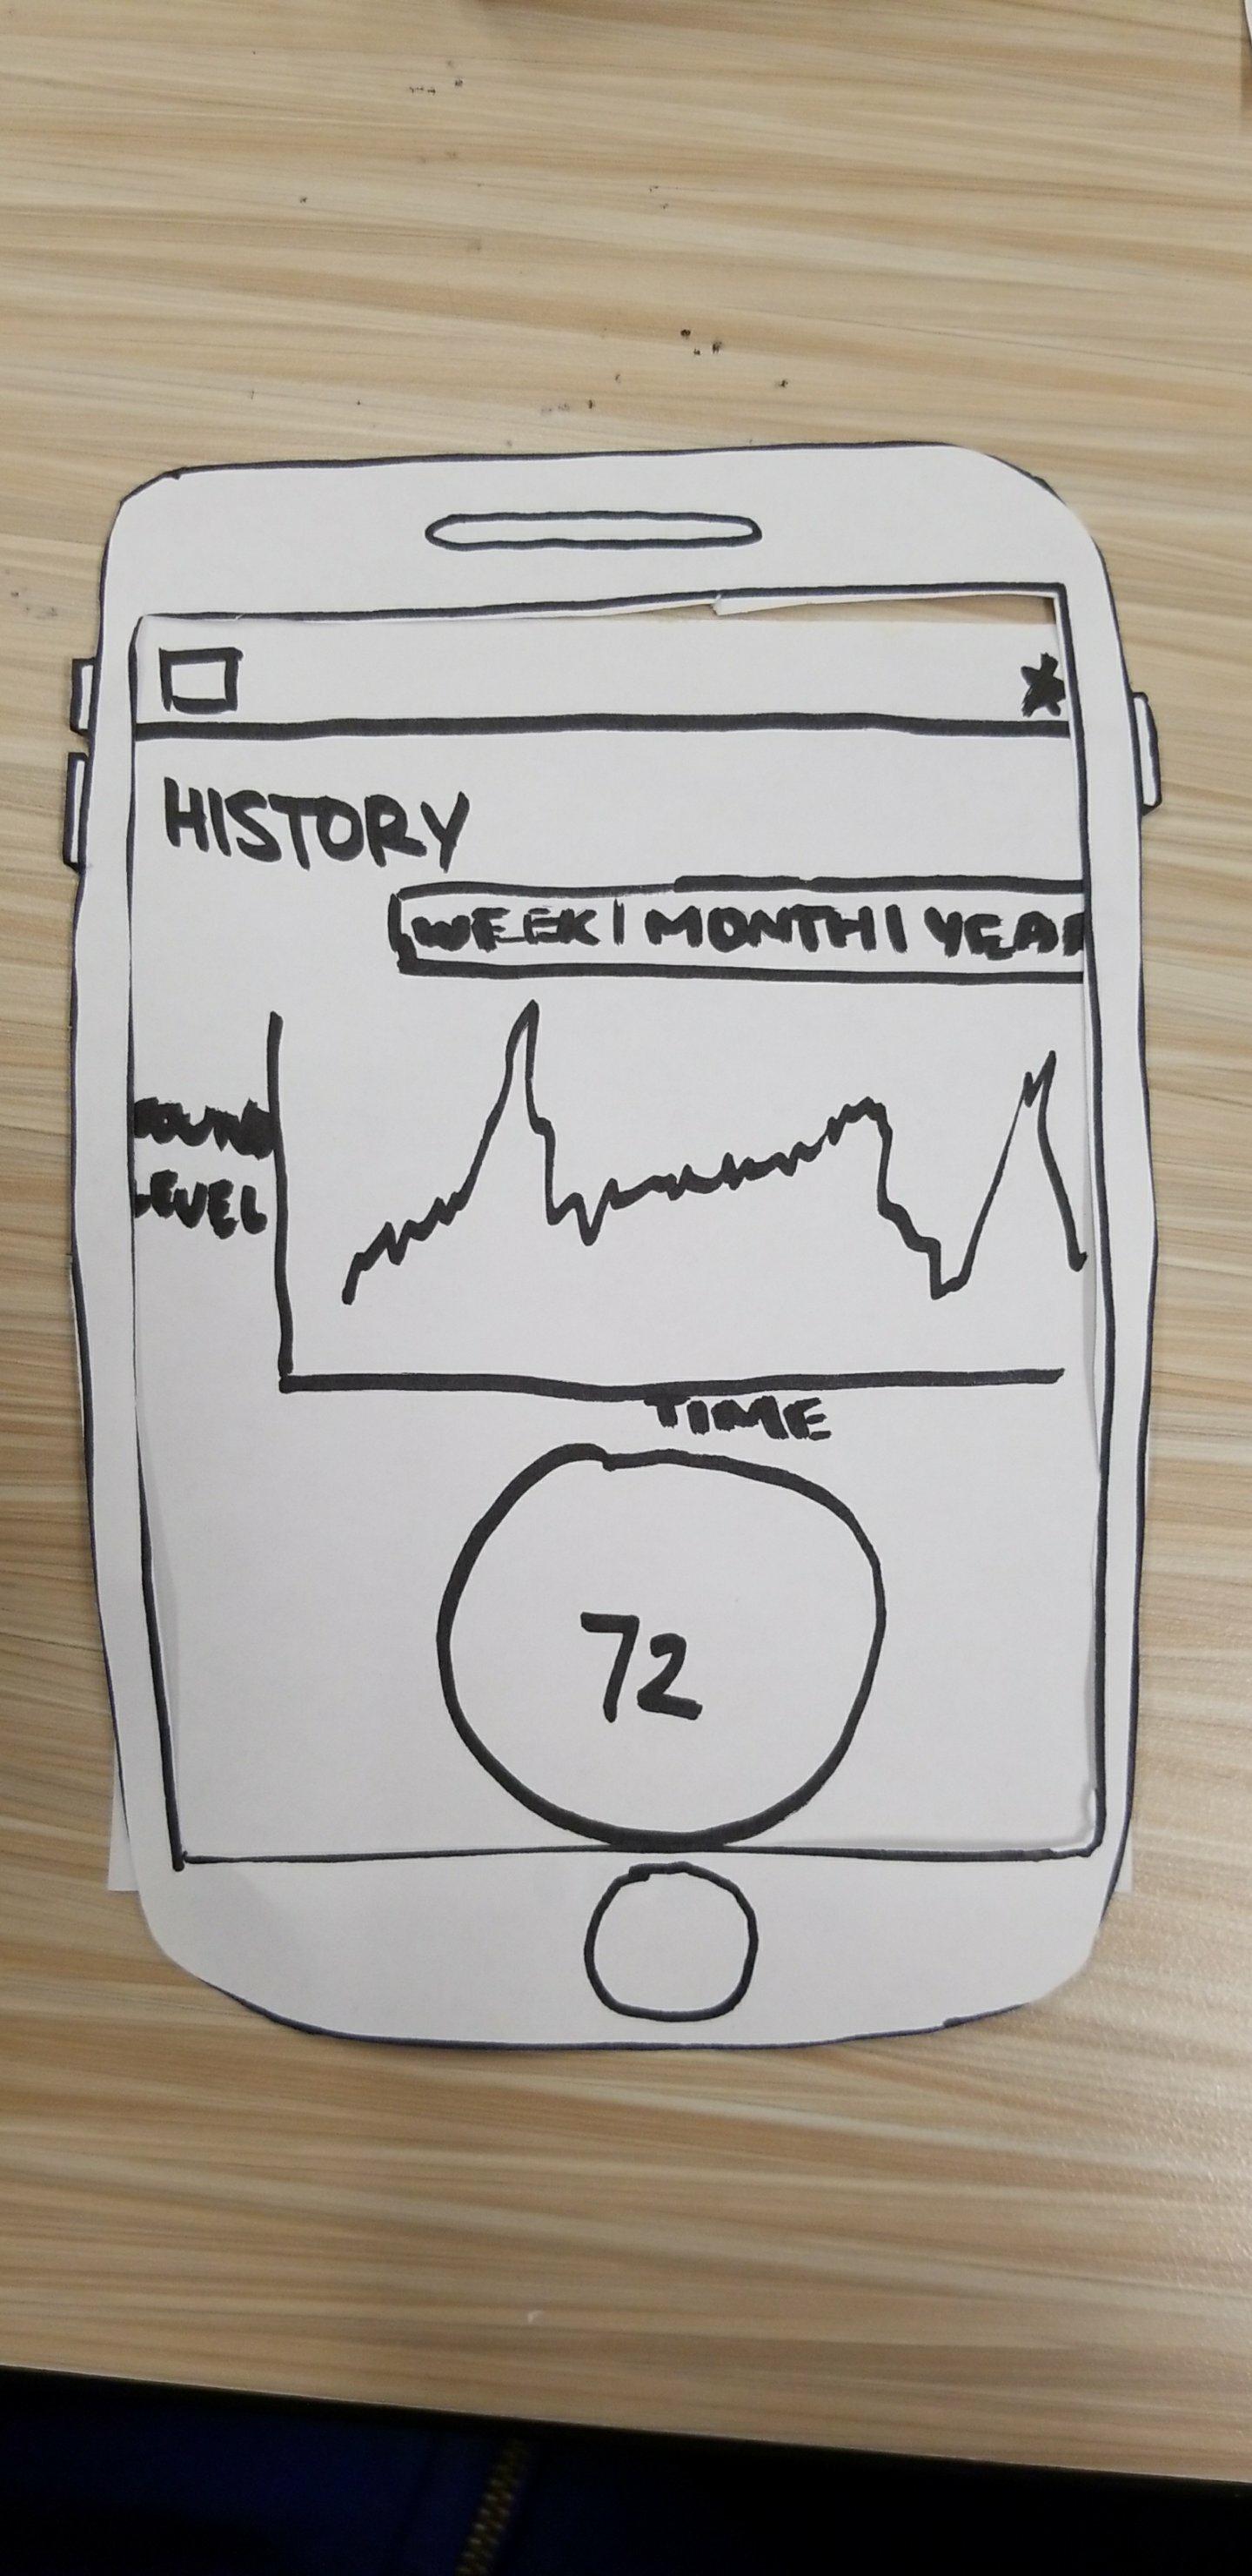 HISTORY
WEEK | MONTH | YEAR
SOUND
LEVEL
TIME
72